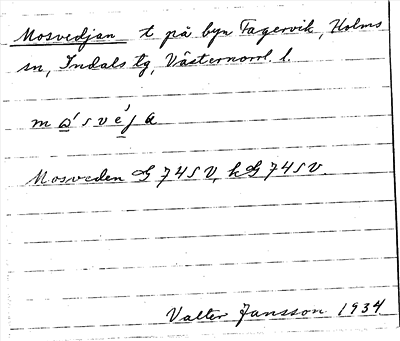 Mosvedjan t på byn Fagervik, Holms
sn, Indals tg, Västernorrl. l.
m o' s v e' j a
Mosveden G 74 S V, kG 74 S V.
Valter Jansson 1934